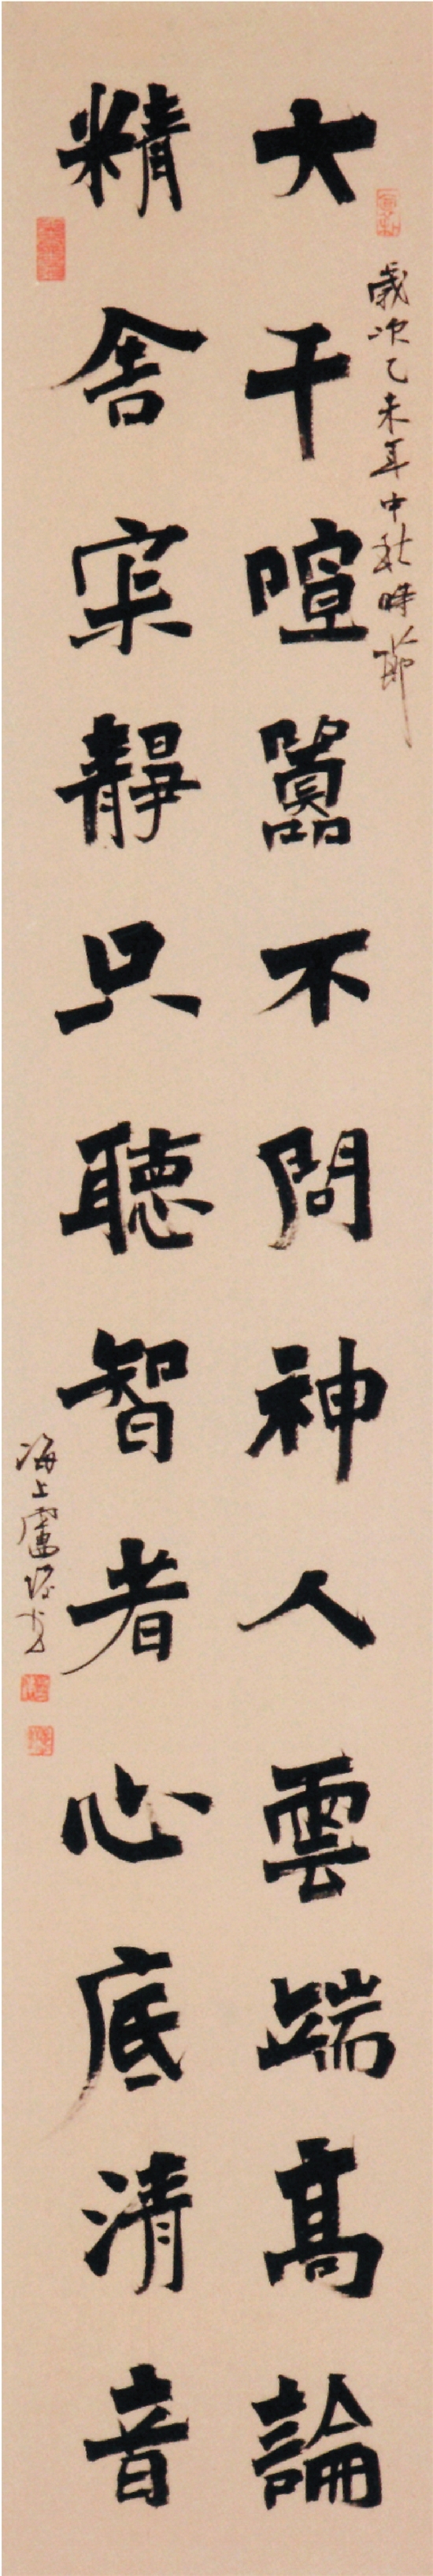 歲次乙未年中秋時節
大千喧囂不問神人雲端高論
精舍寂靜只聽智者心底清音
海上盧書